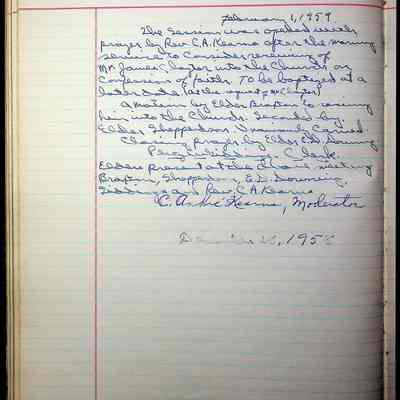 February 1, 1959
The Session was opened with
prayer by Rev. C.A. Kearns after the morning
service to Consider receiving of
Mr. James into the Church on
Confession of faith. To be baptized at a
later date (at the request of Mr. )
a motion by Elder to receive
him into the Church. Seconded by
Elder Shepperdson. Unanimously Carried.
Closing prayer by Elder E.D.
Clerk.
Elders present at the meeting
Shepperdson, E.D.
Giddings and Rev. C.A. Kearns
C. Kearns, Moderator
1958